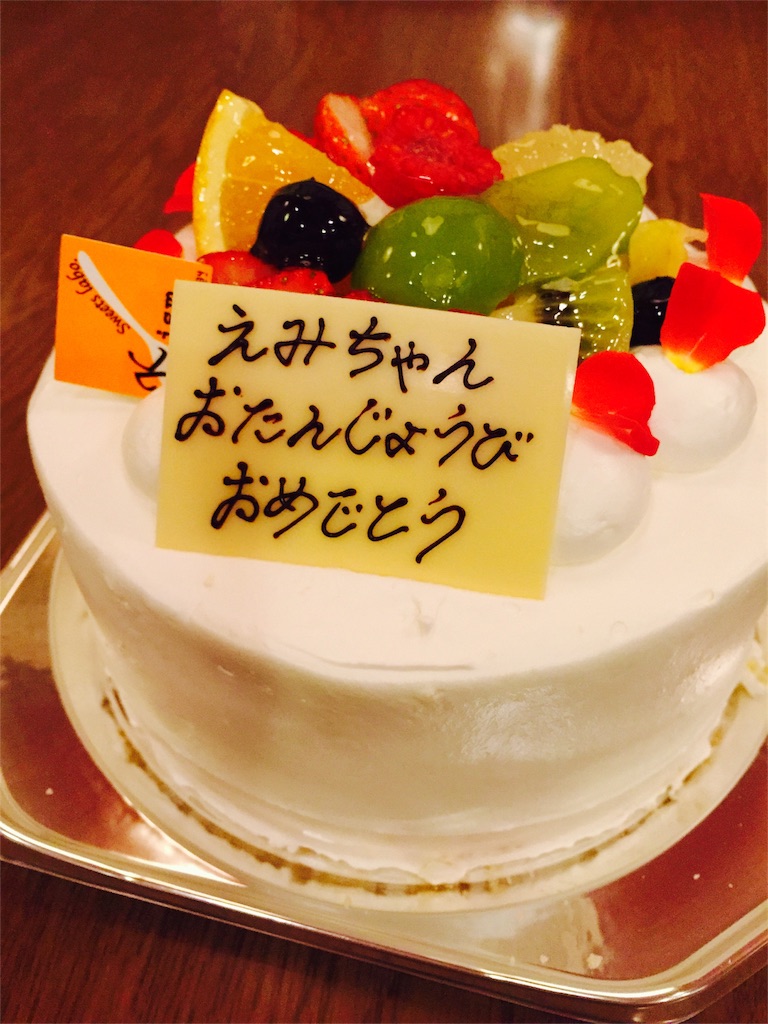 Sweets labo.
えみちゃん
おたんじょうび
おめでとう